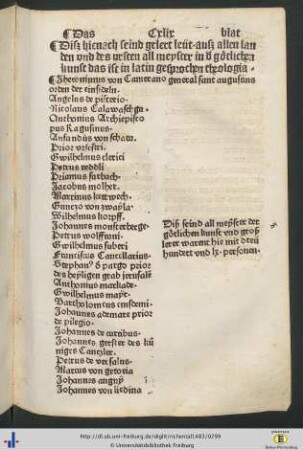 Das Cxlix blat
Disz hienach seind gelert leüt auß allen lan
den vnd des ersten all meyster in d götlichen
kunst das ist in latin gesprochen theologia
Jheronimus von Camerano general sant augustins
orden der einsideln
Angelus de pistorio
Nicolaus
Anthonius Archiepisco
pus Ragusinus
von scham
Prior vrsestri
Gwilhelmus clerici
Petrus
Prianus
Jacobus molhet
Martinus
von zwayla
Wilhelmus korpff
Johannes monsterberge
Petrus wolffram
Gwilhelmus fabri
Franciscus Cancellarius
Stephanus d pargo prior
des heyligen grab jerusalē
Anthonius markade
Gwilhelmus mayr
Bartholomeus ensdemi
Johannes ademare prior
de pilegio
Johannes de curtibus
Johannes gerster des kü
niges Cantzler
Petrus de versalijs
Marcus von getoria
Johannes angny
Johannes von lidina
Disz seind all meyster der
götlichen kunst vnd groß
lerer warent hie mit dreü
hundert vnd lx personen
http://dl.ub.uni-freiburg.de/diglit/richental1483/0299
© Universitätsbibliothek Freiburg